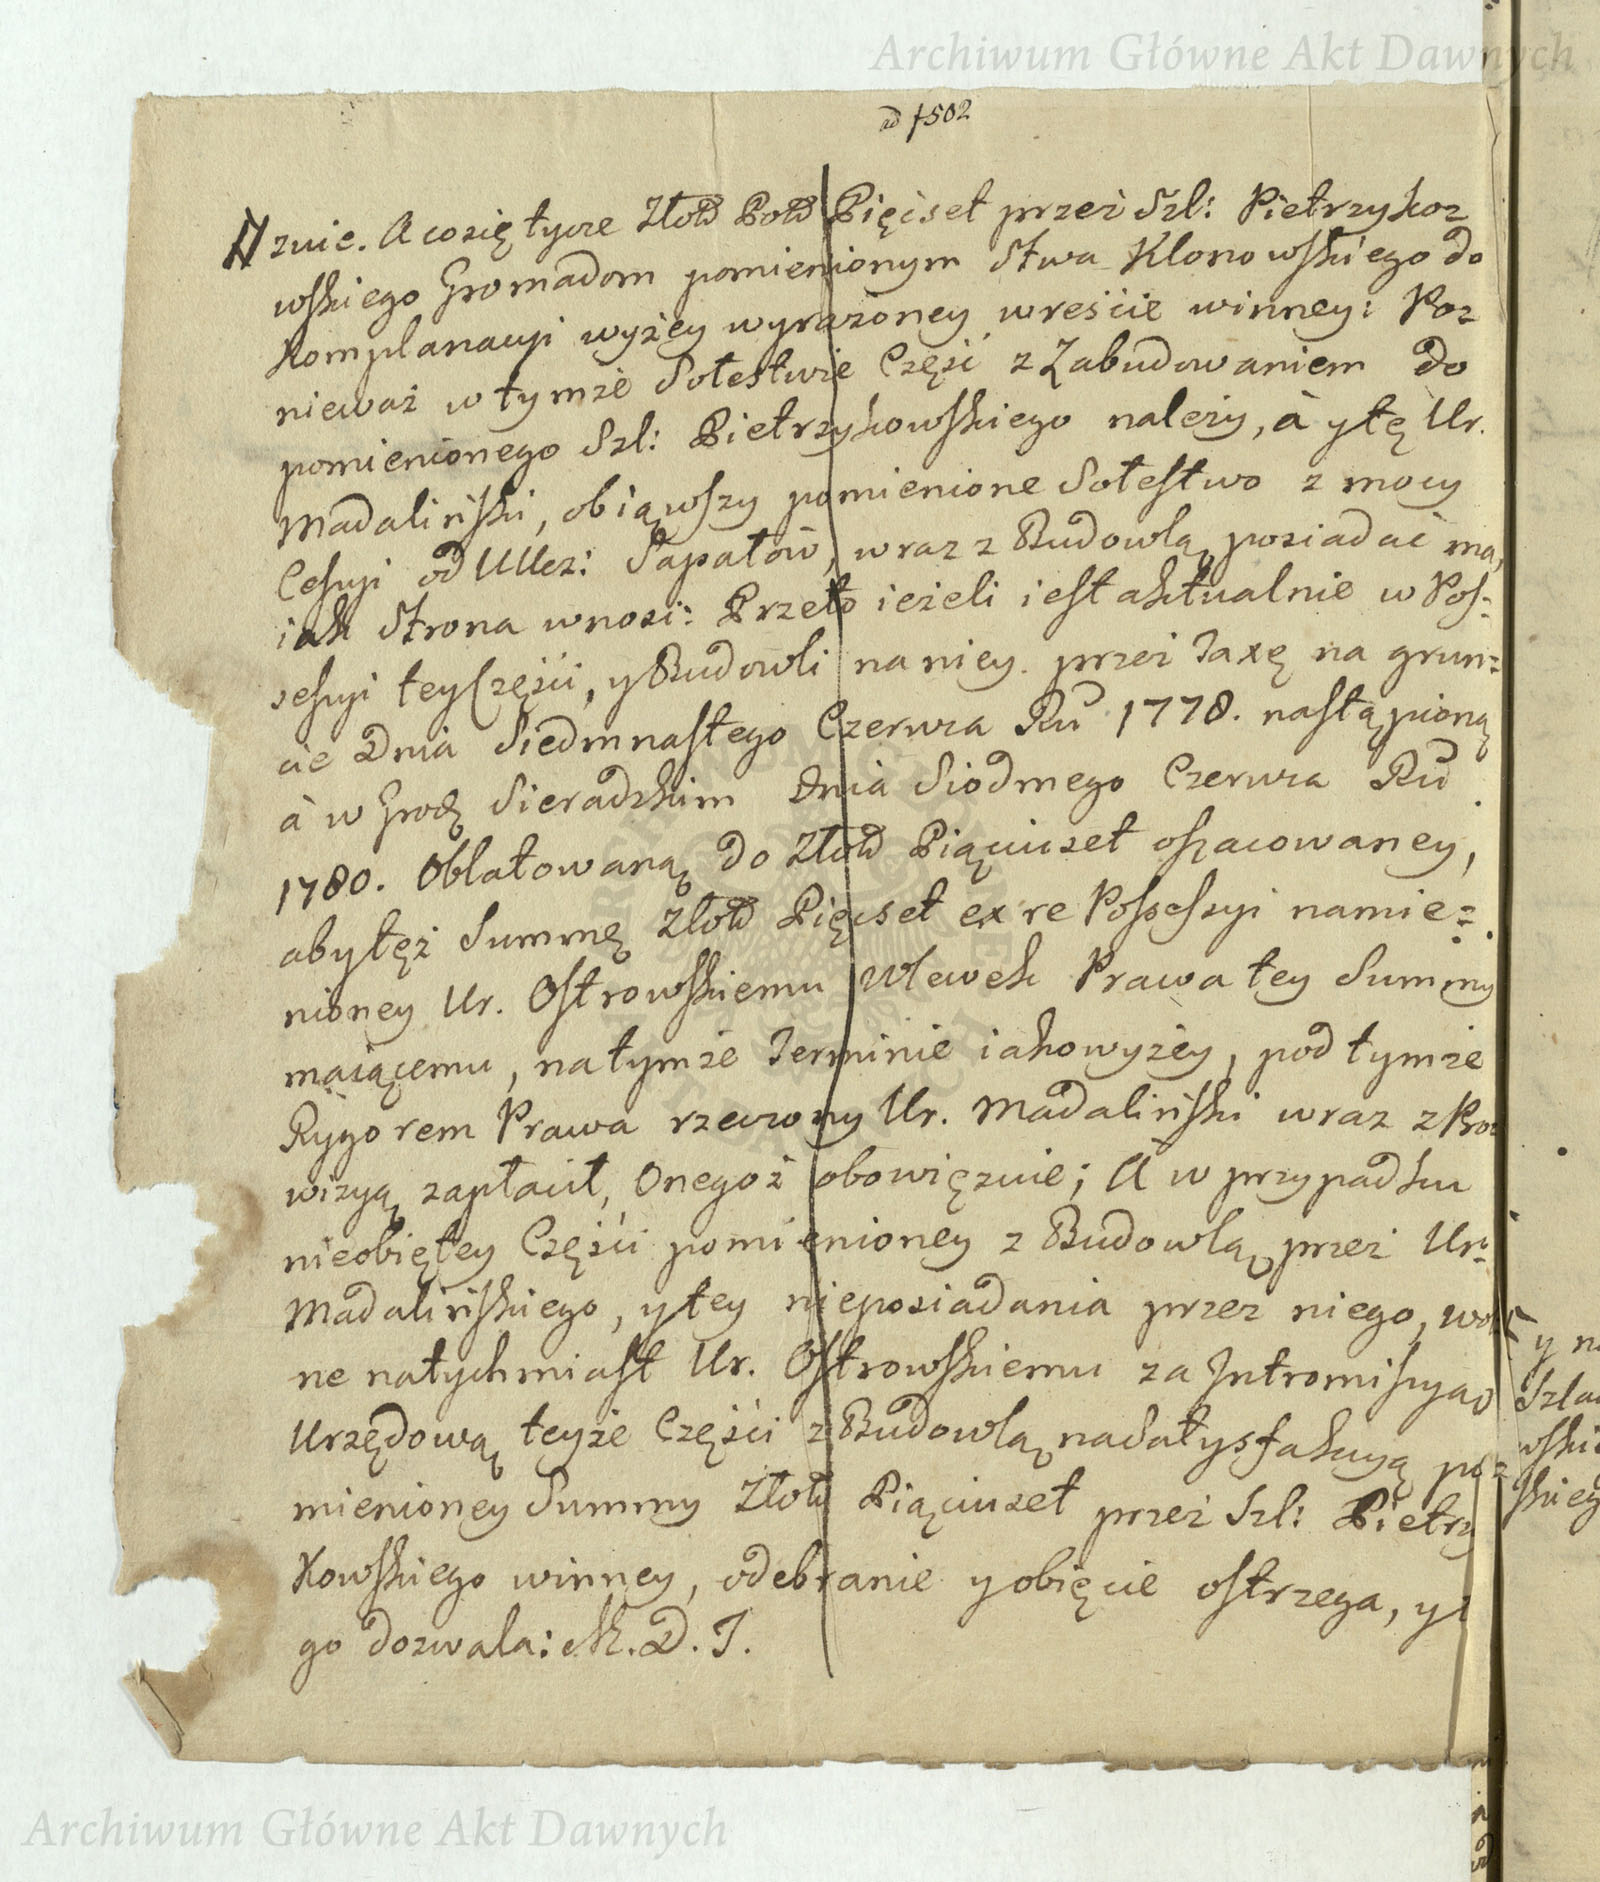 Archiwum Główne Akt Dawnych
ad f 502
znie. A co się tycze Złotħ Polħ Pięćset przez Szl: Pietrzyko=
wskiego Gromadom pomienionym Stwa Klonowskiego do
Komplanacyi wyżey wyrażoney wreście winney: Po=
nieważ w tymże Sołestwie Część z Zabudowaniem do
pomienionego Szl: Pietrzykowskiego należy, à y tę Ur.
Madaliński, obiąwszy pomienione Sołestwo z mocy
Cessyi od UUcz: Sapałów, wraz z Budowlą posiadać ma,
iak Strona wnosi: Przeto ieżeli iest aktualnie w Pos=
sessyi tey Części, y Budowli na niey przez Taxę na grun=
cie Dnia Siedmnastego Czerwca Ru 1778. nastąpioną
à w Grodz Sieradzkim Dnia Siodmego Czerwca Ru
1780. Oblatowaną do Złotħ Piąciuset oszacowaney,
aby też Summę Złotħ Pięcset ex re Possessyi namie=
nioney Ur. Ostrowskiemu Wlewek Prawa tey Summy
maiącemu, na tymże Terminie iako wyżey, pod tymże
Rygorem Prawa rzeczony Ur. Madaliński wraz z Pro=
wizyą zapłacił, Onegoż obowięznie; A w przypadku
nieobiętey Części pomienioney z Budowlą przez Ur:
Madalińskiego, y tey nieposiadania przez niego, wol
ne natychmiast Ur. Ostrowskiemu za Intromissyą
Urzędową teyże Części z Budowlą na satysfakcyą po=
mienioney Summy Złotħ Piąciuset przez Szl: Pietrzy
Kowskiego winney, odebranie y obięcie ostrzega, y
go dozwala: M. D. I.
y n
Szla
wski
skiey
Archiwum Główne Akt Dawnych